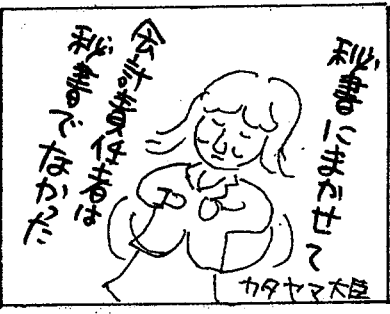 秘書にまかせて
会計責任者は
秘書でなかった
カタヤマ大臣